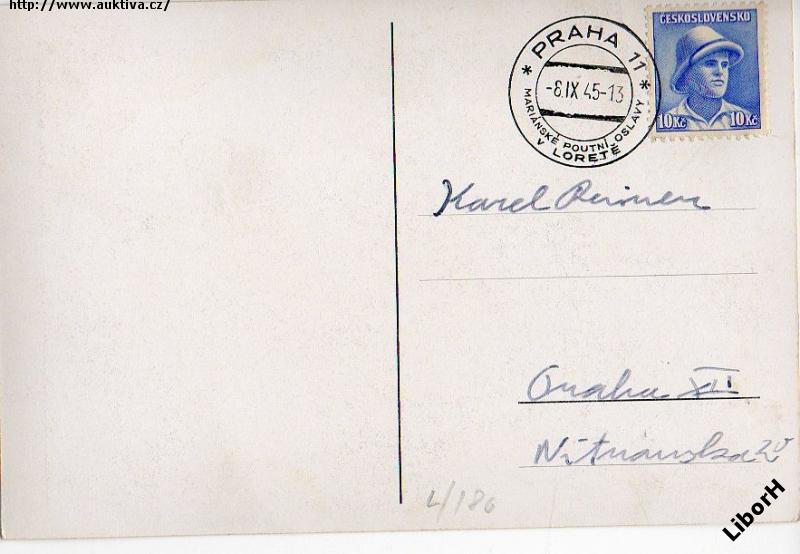 http://www.auktiva.cz/
* PRAHA 11 *
-8.IX 45-13
MARIÁNSKÉ POUTNÍ OSLAVY
V LORETĚ
ČESKOSLOVENSKO
10Kč 10Kč
Karel
Praha XII
Nitranska 20
L/186
LiborH